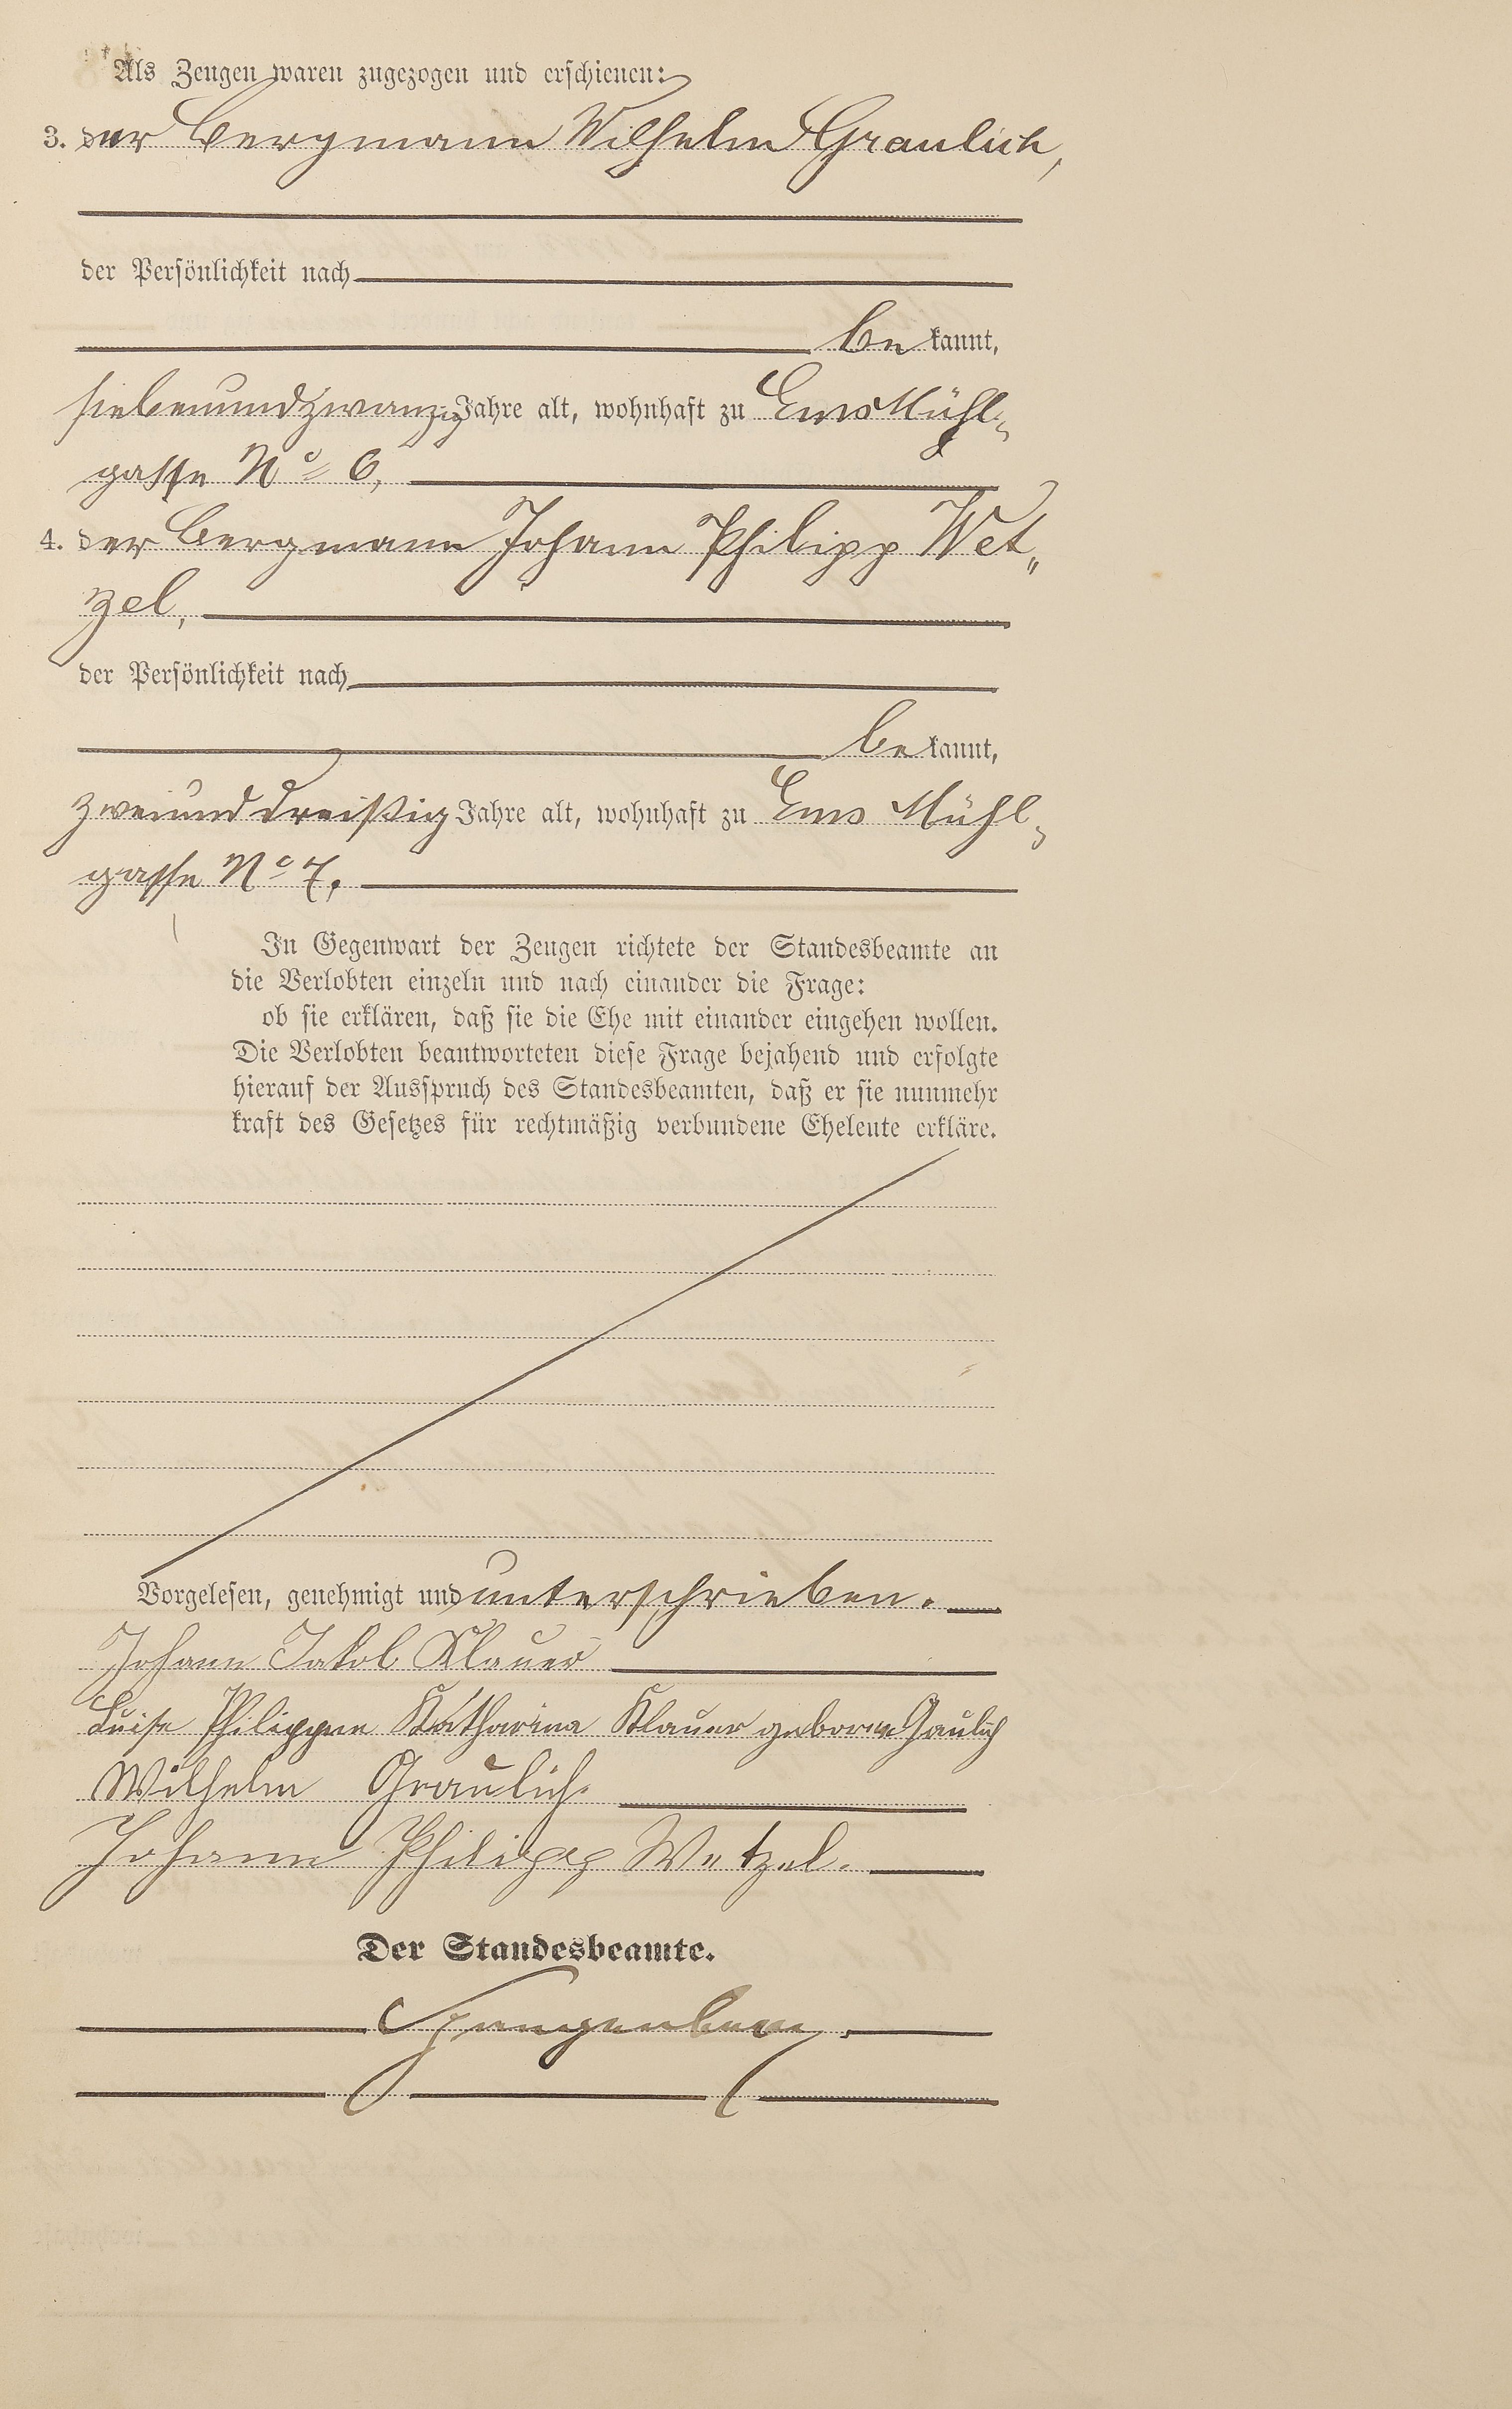 Als Zeugen waren zugezogen und erschienen:
3. der Bergmann Wilhelm Graulich,
der Persönlichkeit nach
be kannt,
siebenundzwanzig Jahre alt, wohnhaft zu Ems Mühl-
gasse No 6,
4. der Bergmann Johann Philipp Wet„
zel,
der Persönlichkeit nach
be kannt,
zweiunddreißig Jahre alt, wohnhaft zu Ems Mühl-
gasse No 7.
In Gegenwart der Zeugen richtete der Standesbeamte an
die Verlobten einzeln und nach einander die Frage:
ob sie erklären, daß sie die Ehe mit einander eingehen wollen.
Die Verlobten beantworteten diese Frage bejahend und erfolgte
hierauf der Ausspruch des Standesbeamten, daß er sie nunmehr
kraft des Gesetzes für rechtmäßig verbundene Eheleute erkläre.
Vorgelesen, genehmigt und unterschrieben.
Johann Jakob Klauer
Luise Philippine Katharina Klauer geborne Gaulich
Wilhelm Graulich.
Johann Philipp Wetzel.
Der Standesbeamte.
Spangenberg.